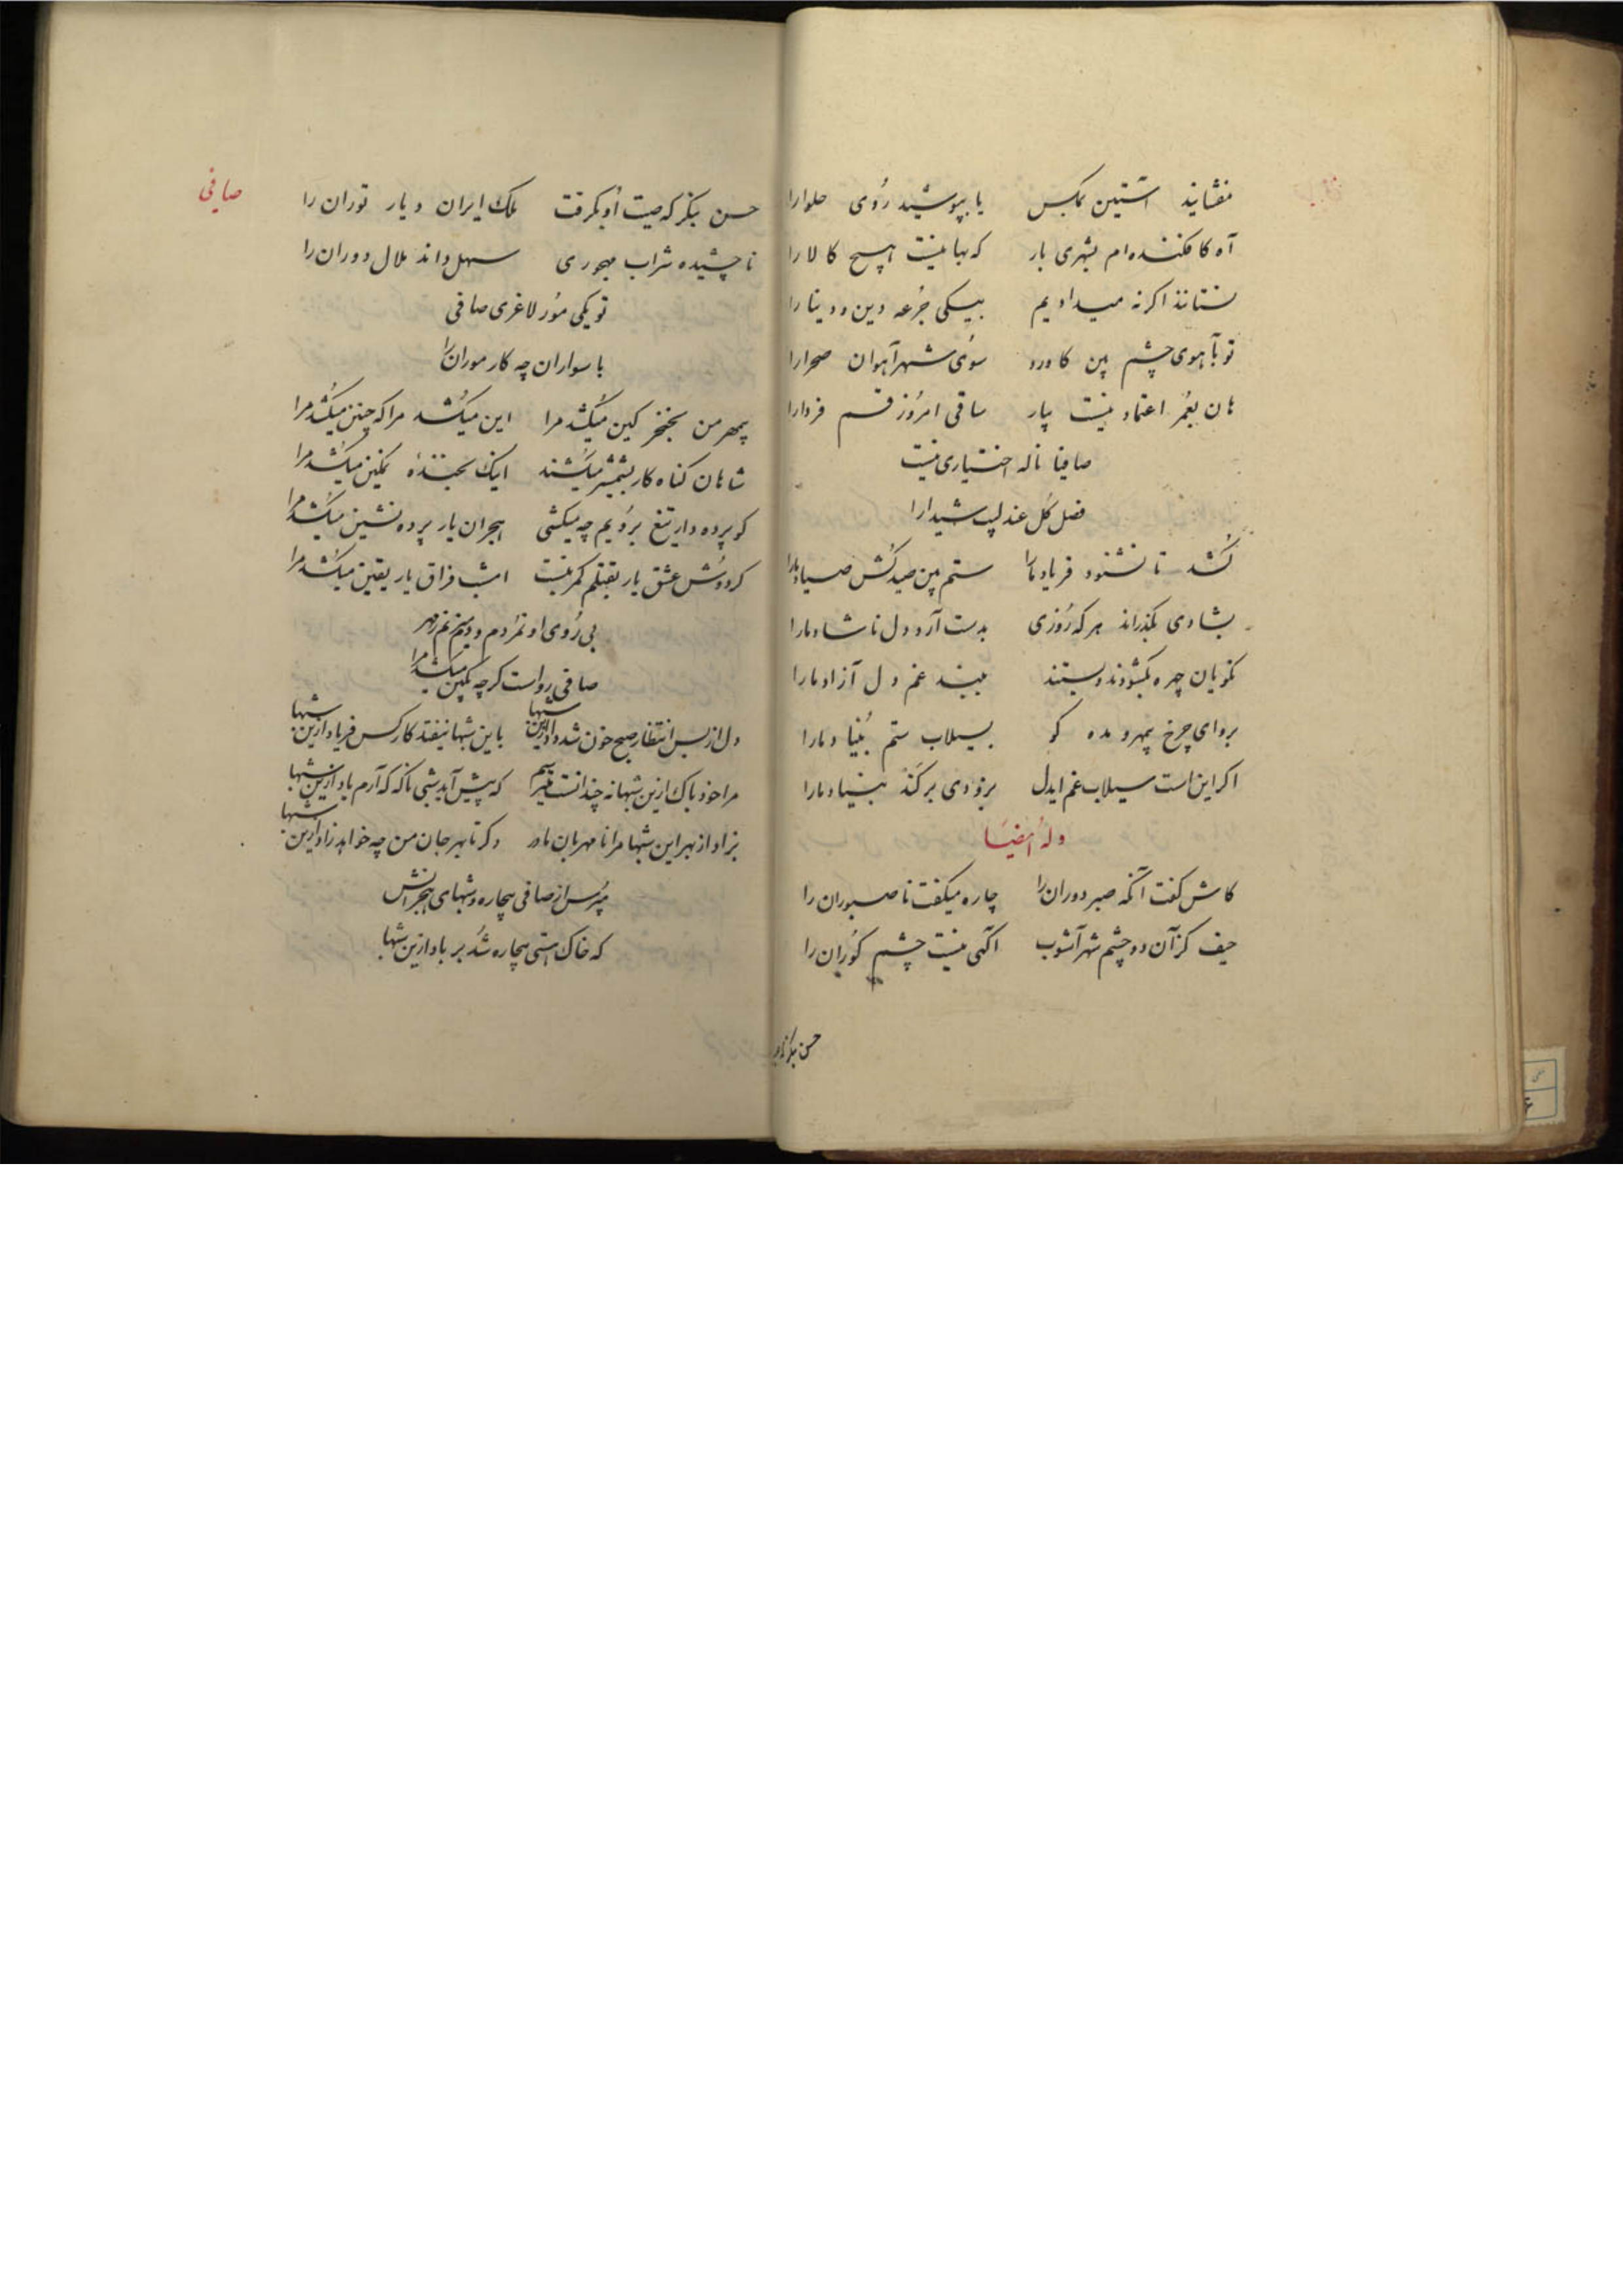 مفشانید آستین بمگس یا بپوشید رُوی حلوا را
آه کافکننده‌ام بشهری بار که بها نیست هیچ کالا را
نستانند اکر نه میدادیم بیکی جُرعه دین و دنیا را
تو بآهوی چشم بین کاورد سُوی شهر آهوان صحرا را
هان بعُمر اعتماد نیست بیار ساقی امرُوز قسم فردا را
صافیا ناله اختیاری نیست
فصل کل عندلیب شیدا را
کُشد تا نشنود فریاد ما را ستم بین صید کُش صیاد ما را
بشادی بکذراند هر که رُوزی بدست آرد دل ناشاد ما را
نکویان چهره بکشودند و بستند ببند غم دل آزاد ما را
برو ای چرخ بیمهر و مده کو بسیلاب ستم بُنیاد ما را
اکر این است سیلاب غم ایدل بزودی بر کند بنیاد ما را
وله ایضاً
کاش کفت آنکه صبر دوران را چاره میکفت ناصبوران را
حیف کز آن دو چشم شهر آشوب آکهی نیست چشم کوران را
حسن بنکر
صافی
حسن بنکر که صیت او بکرفت ملک ایران و دیار توران را
ناچشیده شراب مهجوری سهل داند ملال دوران را
تو یکی مُور لاغری صافی
با سواران چه کار موران را
بیمهر من بخنجر کین میکُشد مرا این میکُشد مرا که چنین میکُشد مرا
شاهان کناه کار بشمشیر میکشند اینک بخنده نمکین میکُشد مرا
کو پرده دار تیغ برُویم چه میکشی هجران یار پرده نشین میکُشد مرا
کر دوش عشق یار بقتلم کمر نبست امشب فراق یار یقین میکُشد مرا
بی رُوی او نمُردم و دیدم رُخ
صافی رواست کر چه بکین میکُشد مرا
دل از بس انتظار صبح خون شد داد ازین شبها باین شبها نیفتد کار کس فریاد ازین شبها
مرا خود باک ازین شبها نه چندانست میترسم که پیش آید شبی ناکه که آرم یاد ازین شبها
بزاد از بهر این شبها مرا نامهربان مادر دکر تا بهر جان من چه خواهد زاد ازین شبها
مپُرس از صافی بیچاره و شبهای هجرانش
که خاک هستی بیچاره شُد بر باد ازین شبها